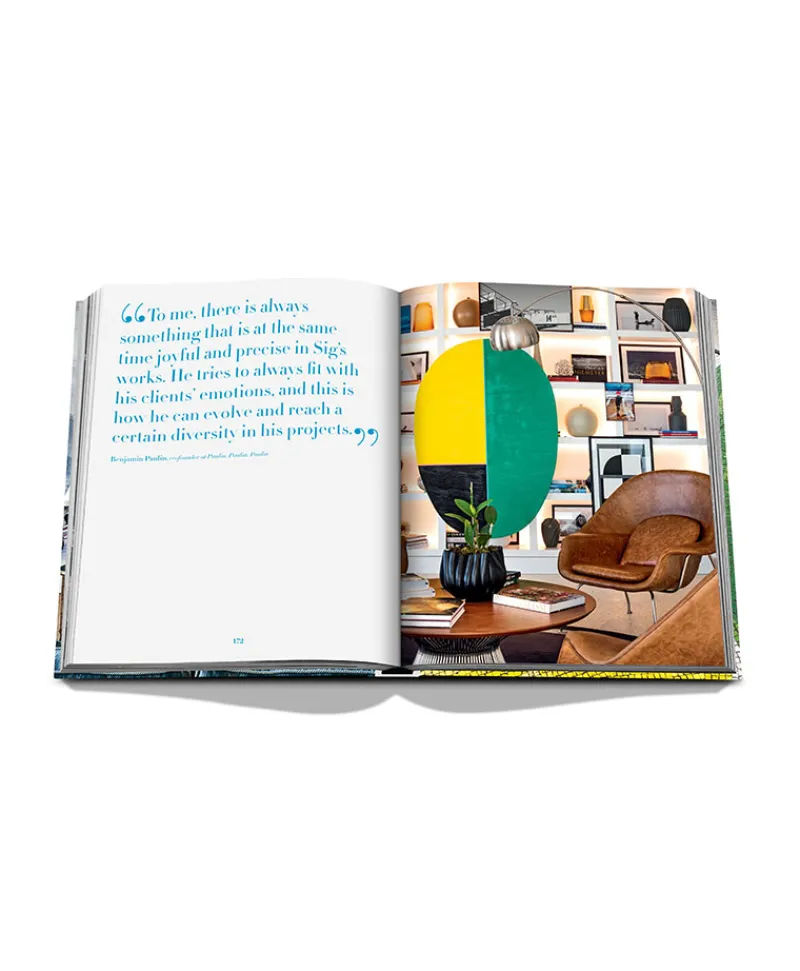 “To me, there is always
something that is at the same
time joyful and precise in Sig's
works. He tries to always fit with
his clients' emotions, and this is
how he can evolve and reach a
certain diversity in his projects.”
Benjamin Paulin, co-founder of Paulin, Paulin, Paulin
172